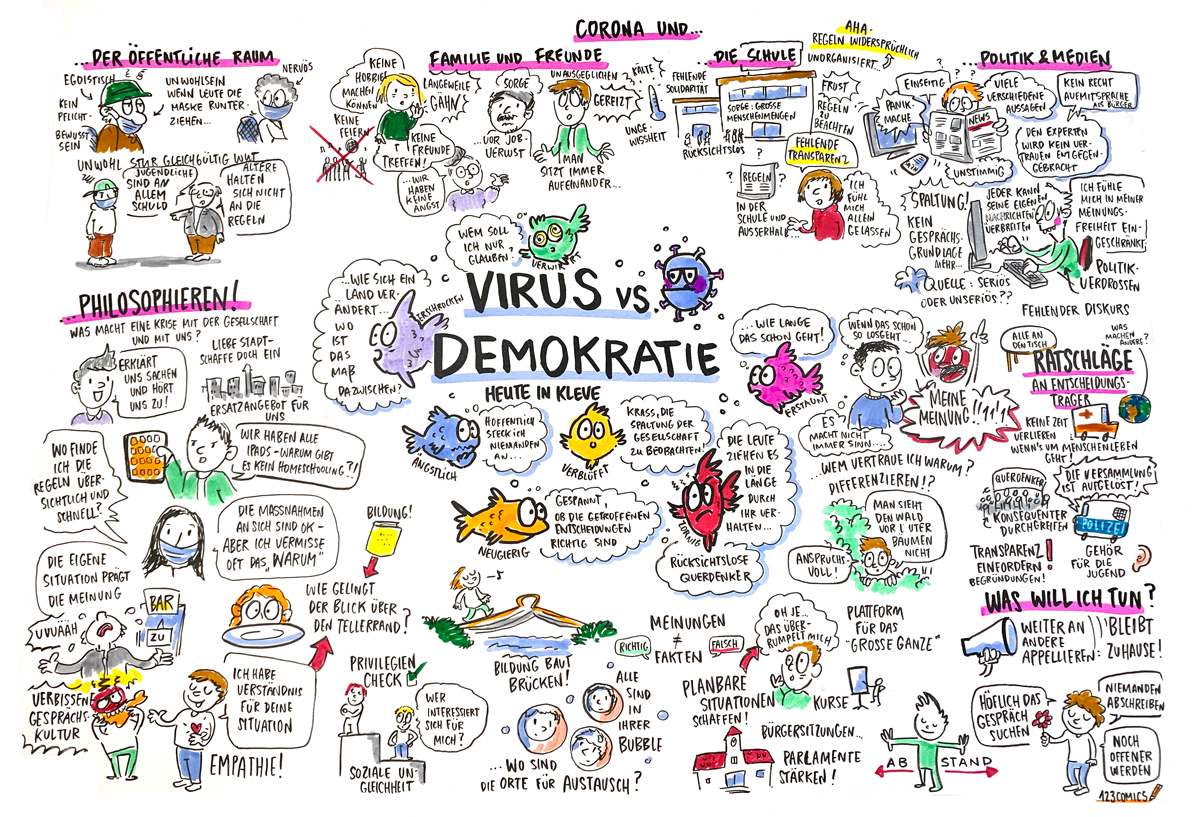 CORONA UND...
...DER ÖFFENTLICHE RAUM
EGOISTISCH
KEIN
PFLICHT-
BEWUSST
SEIN
UNWOHLSEIN
WENN LEUTE DIE
MASKE RUNTER-
ZIEHEN...
NERVÖS
UNWOHL
STUR GLEICHGÜLTIG WUT
JUGENDLICHE
SIND AN
ALLEM
SCHULD
ÄLTERE
HALTEN
SICH NICHT
AN DIE
REGELN
FAMILIE UND FREUNDE
KEINE
HOBBIES
MACHEN
KÖNNEN
KEINE
FEIERN
LANGEWEILE
GÄHN
KEINE
FREUNDE
TREFFEN!
...WIR
HABEN
KEINE
ANGST
SORGE
...VOR JOB-
VERLUST
UNAUSGEGLICHEN
GEREIZT
MAN
SITZT IMMER
AUFEINANDER...
KÄLTE
UNGE-
WISSHEIT
DIE SCHULE
FEHLENDE
SOLIDARITÄT
SORGE: GROSSE
MENSCHENMENGEN
RÜCKSICHTSLOS
AHA-
REGELN WIDERSPRÜCHLICH
UNORGANISIERT...
FRUST
REGELN
ZU
BEACHTEN
FEHLENDE
TRANSPARENZ
?
REGELN
IN DER
SCHULE UND
AUSSERHALB...
ICH
FÜHL
MICH
ALLEIN
GELASSEN
POLITIK & MEDIEN
EINSEITIG
PANIK
MACHE
VIELE
VERSCHIEDENE
AUSSAGEN
NEWS
UNSTIMMIG
KEIN RECHT
AUF MITSPRACHE
ALS BÜRGER
DEN EXPERTEN
WIRD KEIN VER-
TRAUEN ENTGEGEN-
GEBRACHT
SPALTUNG!
KEIN
GESPRÄCHS-
GRUNDLAGE
MEHR...
JEDER KANN
SEINE EIGENEN
NACHRICHTEN
VERBREITEN
ICH FÜHLE
MICH IN MEINER
MEINUNGS-
FREIHEIT EIN-
GESCHRÄNKT
POLITIK-
VERDROSSEN
QUELLE: SERIÖS
ODER UNSERIÖS??
FEHLENDER DISKURS
WEM SOLL
ICH NUR
GLAUBEN?
VERWIRRT
VIRUS VS.
DEMOKRATIE
HEUTE IN KLEVE
...WIE SICH EIN
LAND VER-
ÄNDERT...
WO
IST
DAS
MAß
DAZWISCHEN?
ERSCHROCKEN
...WIE LANGE
DAS SCHON GEHT!
ERSTAUNT
WENN DAS SCHON
SO LOSGEHT...
ES
MACHT NICHT
IMMER SINN...
MEINE
MEINUNG!!!1!1!
HOFFENTLICH
STECK ICH
NIEMANDEN
AN...
ÄNGSTLICH
VERBLÜFFT
KRASS, DIE
SPALTUNG DER
GESELLSCHAFT
ZU BEOBACHTEN
GESPANNT,
OB DIE GETROFFENEN
ENTSCHEIDUNGEN
RICHTIG SIND
NEUGIERIG
DIE LEUTE
ZIEHEN ES
IN DIE
LÄNGE
DURCH
IHR VER-
HALTEN...
ZORNIG
RÜCKSICHTSLOSE
QUERDENKER
WEM VERTRAUE ICH WARUM?
DIFFERENZIEREN!?
MAN SIEHT
DEN WALD
VOR LAUTER
BÄUMEN
NICHT
ANSPRUCHS-
VOLL!
...PHILOSOPHIEREN!
WAS MACHT EINE KRISE MIT DER GESELLSCHAFT
UND MIT UNS?
ERKLÄRT
UNS SACHEN
UND HÖRT
UNS ZU!
LIEBE STADT-
SCHAFFE DOCH EIN
ERSATZANGEBOT FÜR
UNS
WIR HABEN ALLE
IPADS - WARUM GIBT
ES KEIN HOMESCHOOLING?!
WO FINDE
ICH DIE
REGELN ÜBER-
SICHTLICH UND
SCHNELL?
DIE MASSNAHMEN
AN SICH SIND OK -
ABER ICH VERMISSE
OFT DAS "WARUM"
DIE EIGENE
SITUATION PRÄGT
DIE MEINUNG
UVUÄÄH
BAR
ZU
BILDUNG!
WIE GELINGT
DER BLICK ÜBER
DEN TELLERRAND?
VERBISSENE
GESPRÄCHS-
KULTUR
ICH HABE
VERSTÄNDNIS
FÜR DEINE
SITUATION
EMPATHIE!
PRIVILEGIEN
CHECK
WER
INTERESSIERT
SICH FÜR
MICH?
SOZIALE UN-
GLEICHHEIT
BILDUNG BAUT
BRÜCKEN!
ALLE
SIND
IN
IHRER
BUBBLE
...WO SIND
DIE ORTE FÜR AUSTAUSCH?
MEINUNGEN
≠
FAKTEN
RICHTIG
FALSCH
OH JE...
DAS ÜBER-
RUMPELT MICH
PLANBARE
SITUATIONEN
SCHAFFEN!
PLATTFORM
FÜR DAS
"GROSSE GANZE"
KURSE
BÜRGERSITZUNGEN...
PARLAMENTE
STÄRKEN!
ALLE AN
DEN TISCH
WAS
MACHEN
ANDERE?
RATSCHLÄGE
AN ENTSCHEIDUNGS-
TRÄGER
KEINE ZEIT
VERLIEREN
WENN'S UM MENSCHENLEBEN
GEHT!
QUERDENKER
KONSEQUENTER
DURCHGREIFEN
DIE VERSAMMLUNG
IST AUFGELÖST!
POLIZEI
TRANSPARENZ
EINFORDERN!
BEGRÜNDUNGEN!
GEHÖR
FÜR DIE
JUGEND
WAS WILL ICH TUN?
WEITER AN
ANDERE
APPELLIEREN:
BLEIBT
ZUHAUSE!
HÖFLICH DAS
GESPRÄCH
SUCHEN
NIEMANDEN
ABSCHREIBEN
NOCH
OFFENER
WERDEN
AB STAND
123COMICS